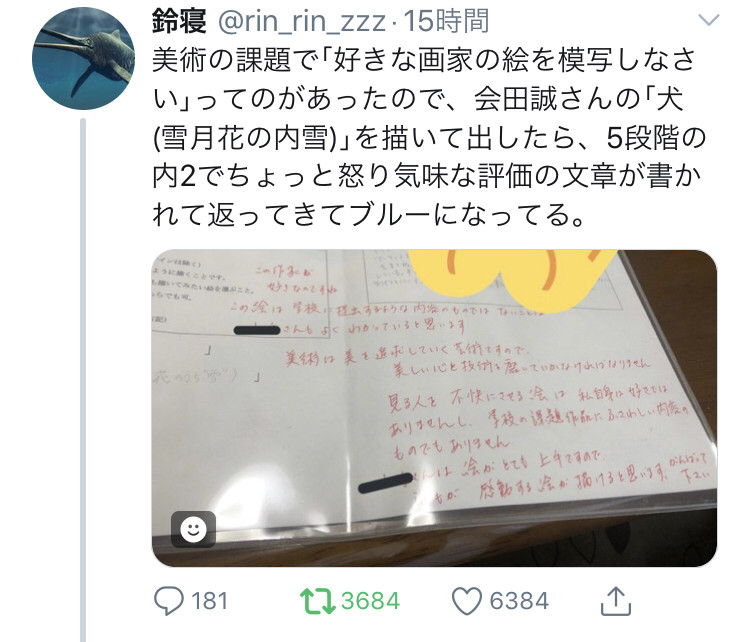 鈴寝 @rin_rin_zzz · 15時間
美術の課題で｢好きな画家の絵を模写しなさ
い｣ってのがあったので、会田誠さんの｢犬
(雪月花の内雪)｣を描いて出したら、5段階の
内2でちょっと怒り気味な評価の文章が書か
れて返ってきてブルーになってる。
インは除く)
ように描くことです。
も描いてみたい絵を選ぶこと。
らでも可。
この作家が
好きなのですね
この絵は学校に提出するような内容のものではないことは
さんもよくわかっていると思います
美術は美を追求していく芸術ですので
美しい心と技術を磨いていかなければなりません
花のうち"雪")
見る人を不快にさせる絵は私自身は好きでは
ありませんし、学校の課題作品にふさわしい内容の
ものでもありません
さんは絵がとても上手ですので
感動する絵が描けると思います。がんばって
下さい
181
3684
6384